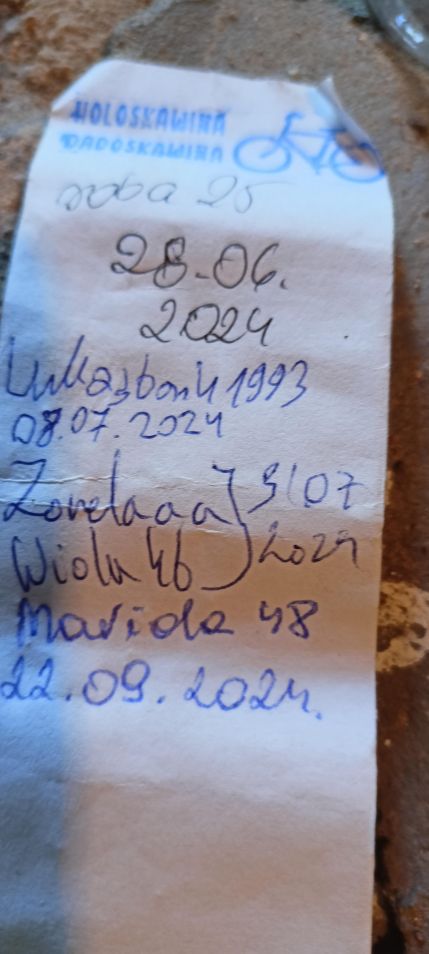 HOLOSKAWIRA
RADOSKAWIRA
roba 25
28.06.
2024
Lukaszbonk1993
08.07.2024
Zonelaaa } 31 07
Wiola 46 } 2024
Marida 48
22.09.2024.